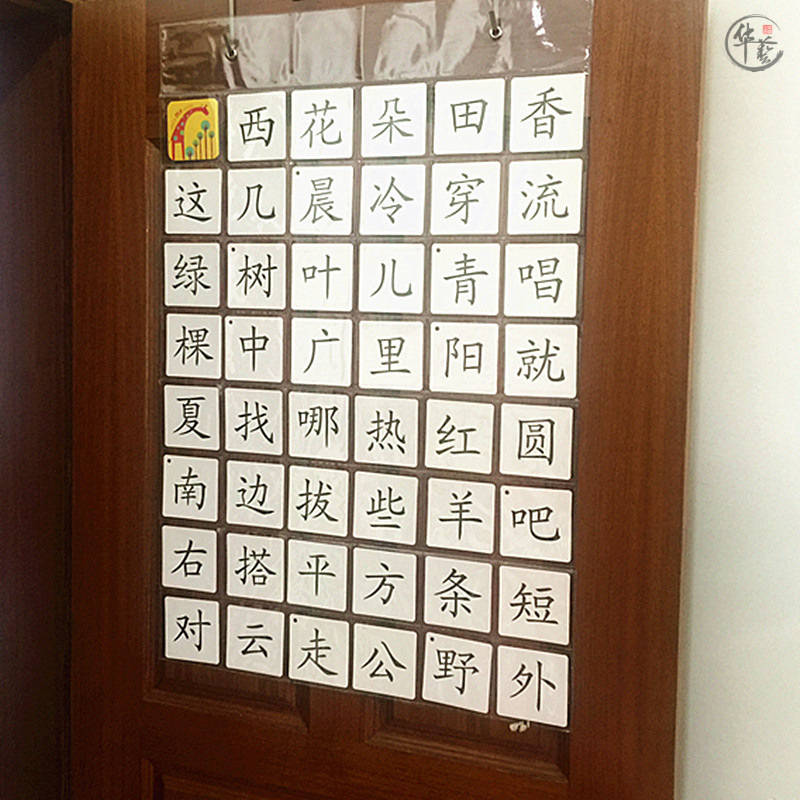 华艺
西花朵田香
这几晨冷穿流
绿树叶儿青唱
棵中广里阳就
夏找哪热红圆
南边拔些羊吧
右搭平方条短
对云走公野外